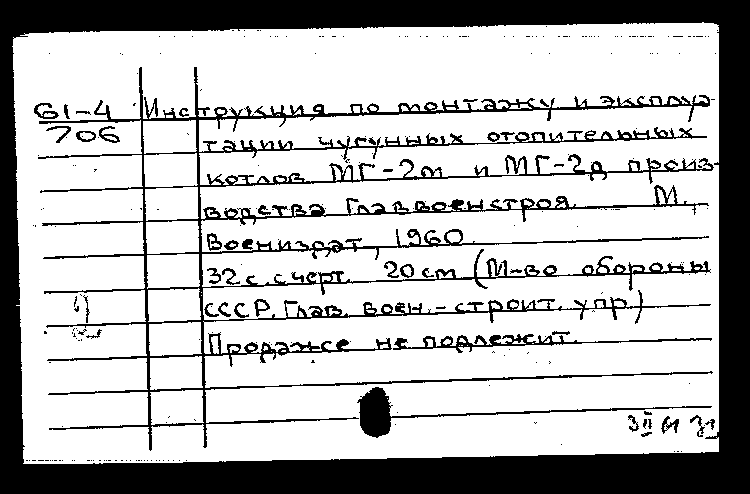 61-4 Инструкция по монтажу и эксплуа-
706
тации чугунных отопительных
котлов МГ-2м и МГ-2д произ-
водства Главвоенстроя. М.,
Воениздат, 1960.
32 с. с черт. 20 см (М-во обороны
СССР. Глав. воен.-строит. упр.)
Продаже не подлежит.
2
3 II 61